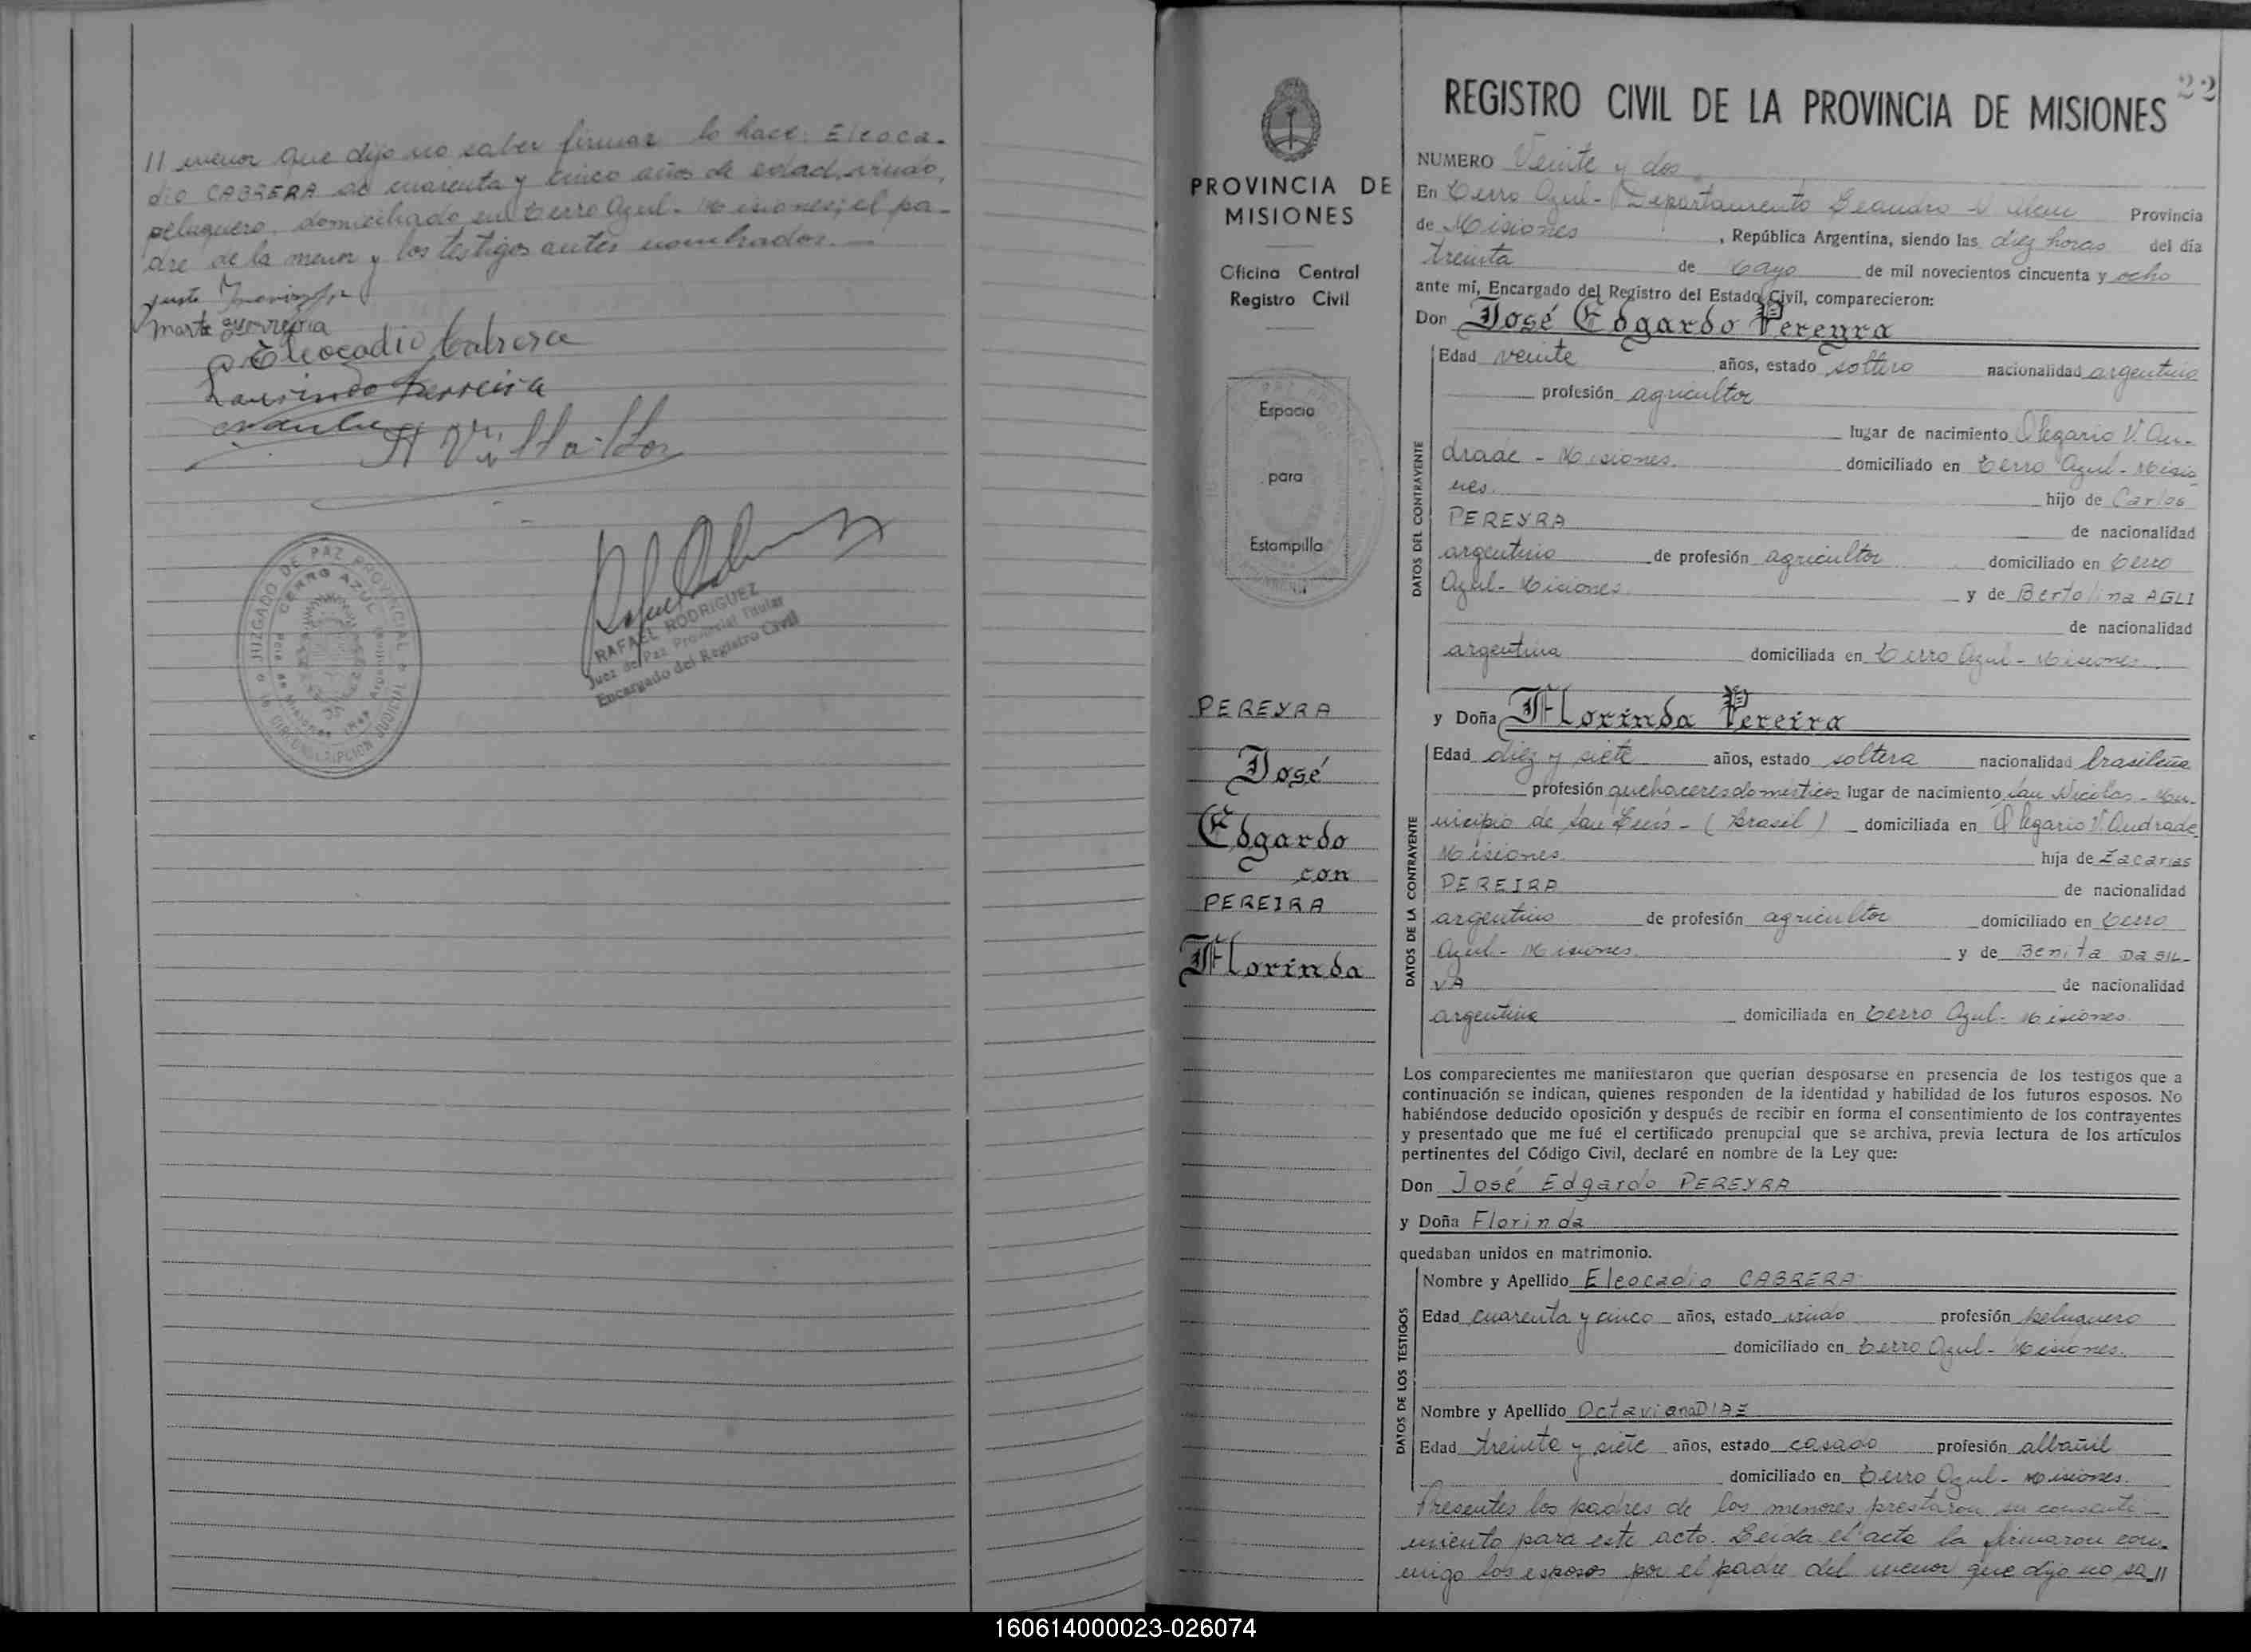 // menor que dijo no saber firmar lo hace: Eleoca-
dio CABRERA de cuarenta y cinco años de edad, viudo,
peluquero, domiciliado en Cerro Azul - Misiones; el pa-
dre de la menor y los testigos antes nombrados.—
Eleocadio Cabrera
Laurindo Ferreira
JUZGADO DE PAZ PROVINCIAL
CERRO AZUL
CIRCUNSCRIPCION JUDICIAL
RAFAEL RODRIGUEZ
Juez de Paz Provincial Titular
Encargado del Registro Civil
22
REGISTRO CIVIL DE LA PROVINCIA DE MISIONES
PROVINCIA DE
MISIONES
Oficina Central
Registro Civil
Espacio
para
Estampilla
PEREYRA
José
Edgardo
con
PEREIRA
Florinda
NUMERO Veinte y dos
En Cerro Azul - Departamento Leandro N. Alem Provincia
de Misiones, República Argentina, siendo las diez horas del día
treinta de Mayo de mil novecientos cincuenta y ocho
ante mí, Encargado del Registro del Estado Civil, comparecieron:
Don José Edgardo Pereyra
DATOS DEL CONTRAYENTE
Edad veinte años, estado soltero nacionalidad argentino
profesión agricultor
lugar de nacimiento Olegario V. An-
drade - Misiones. domiciliado en Cerro Azul - Misio
nes. hijo de Carlos
PEREYRA de nacionalidad
argentino de profesión agricultor domiciliado en Cerro
Azul - Misiones y de Bertolina AGLI
de nacionalidad
argentina domiciliada en Cerro Azul - Misiones.
y Doña Florinda Pereira
DATOS DE LA CONTRAYENTE
Edad diez y siete años, estado soltera nacionalidad brasileña
profesión quehaceres domésticos lugar de nacimiento San Nicolas - Mu-
nicipio de San Luis - (Brasil) domiciliada en Olegario V. Andrade
Misiones. hija de Zacarias
PEREIRA de nacionalidad
argentino de profesión agricultor domiciliado en Cerro
Azul - Misiones. y de Benita DA SIL-
VA de nacionalidad
argentina domiciliada en Cerro Azul - Misiones.
Los comparecientes me manifestaron que querían desposarse en presencia de los testigos que a
continuación se indican, quienes responden de la identidad y habilidad de los futuros esposos. No
habiéndose deducido oposición y después de recibir en forma el consentimiento de los contrayentes
y presentado que me fué el certificado prenupcial que se archiva, previa lectura de los artículos
pertinentes del Código Civil, declaré en nombre de la Ley que:
Don José Edgardo PEREYRA
y Doña Florinda
quedaban unidos en matrimonio.
DATOS DE LOS TESTIGOS
Nombre y Apellido Eleocadio CABRERA
Edad cuarenta y cinco años, estado viudo profesión peluquero
domiciliado en Cerro Azul - Misiones.
Nombre y Apellido Octaviana DIAZ
Edad treinta y siete años, estado casado profesión albañil
domiciliado en Cerro Azul - Misiones.
Presentes los padres de los menores prestaron su consenti-
miento para este acto. Leida el acta la firmaron con-
migo los esposos por el padre del menor que dijo no sa//
160614000023-026074